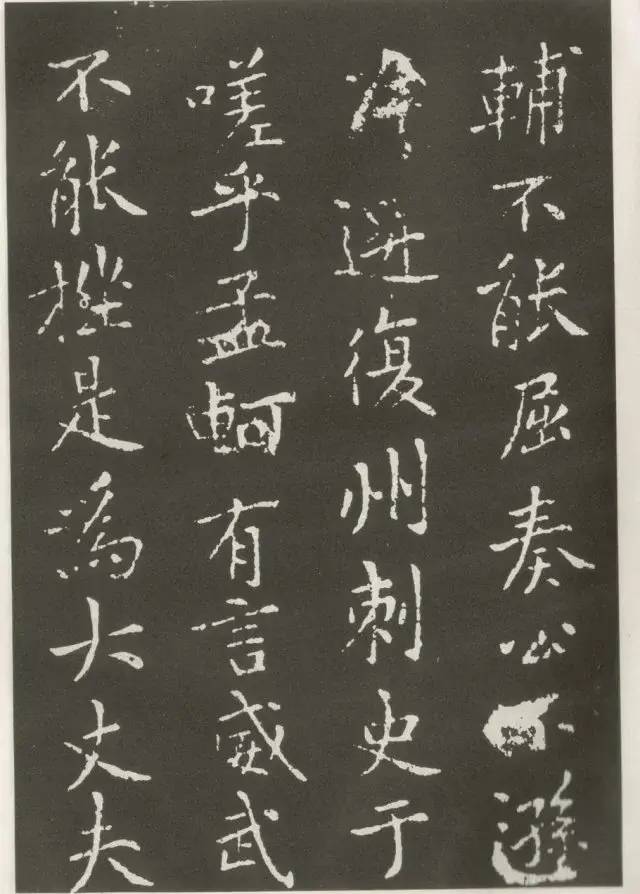 輔不能屈奏公不遜
選復州刺史于
嗟乎孟軻有言威武
不能挫是為大丈夫